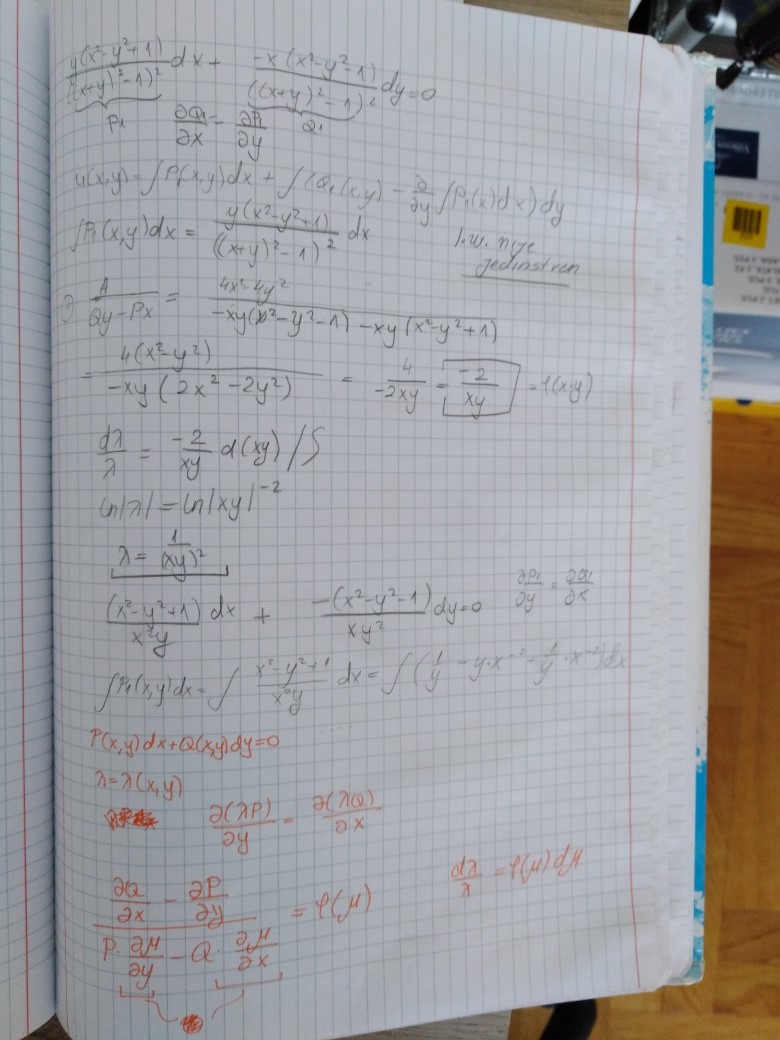 y(x²-y²+1)/((x+y)²-1)² dx + -x(x²-y²-1)/((x+y)²-1)² dy=0
P₁ ∂Q₁/∂x = ∂P₁/∂y Q₁
u(x,y)=∫P₁(x,y)dx + ∫(Q₁(x,y) - ∂/∂y ∫P₁(x)dx)dy
∫P₁(x,y)dx = y(x²-y²+1)/((x+y)²-1)² dx
I.w. nije
jedinstven
A/(Qy-Px) = (4x²-4y²)/(-xy(x²-y²-1)-xy(x²-y²+1))
= 4(x²-y²)/(-xy(2x²-2y²)) = 4/(-2xy) = -2/xy = φ(xy)
dλ/λ = -2/xy d(xy) /∫
ln|λ|=ln|xy|⁻²
λ= 1/(xy)²
(x²-y²+1)/(x²y) dx + -(x²-y²-1)/(xy²) dy=0 ∂P₁/∂y = ∂Q₁/∂x
∫P₁(x,y)dx= ∫ (x²-y²+1)/(x²y) dx = ∫(1/y - y·x⁻² + 1/y · x⁻²)dx
P(x,y)dx+Q(x,y)dy=0
λ=λ(x,y)
∂(λP)/∂y = ∂(λQ)/∂x
(∂Q/∂x - ∂P/∂y)/(P·∂μ/∂y - Q·∂μ/∂x) = φ(μ) dλ/λ = φ(μ)dμ